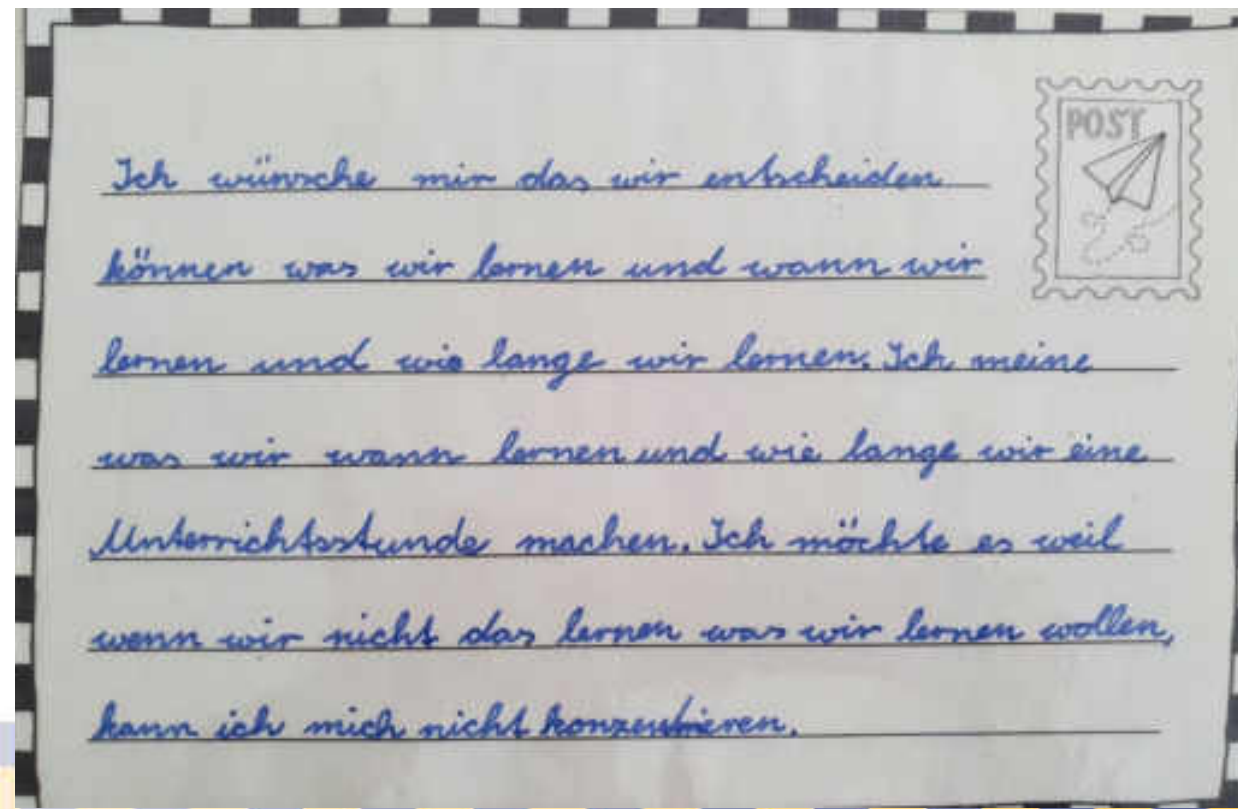 POST
Ich wünsche mir das wir entscheiden
können was wir lernen und wann wir
lernen und wie lange wir lernen. Ich meine
was wir wann lernen und wie lange wir eine
Unterrichtsstunde machen. Ich möchte es weil
wenn wir nicht das lernen was wir lernen wollen,
kann ich mich nicht konzentrieren.